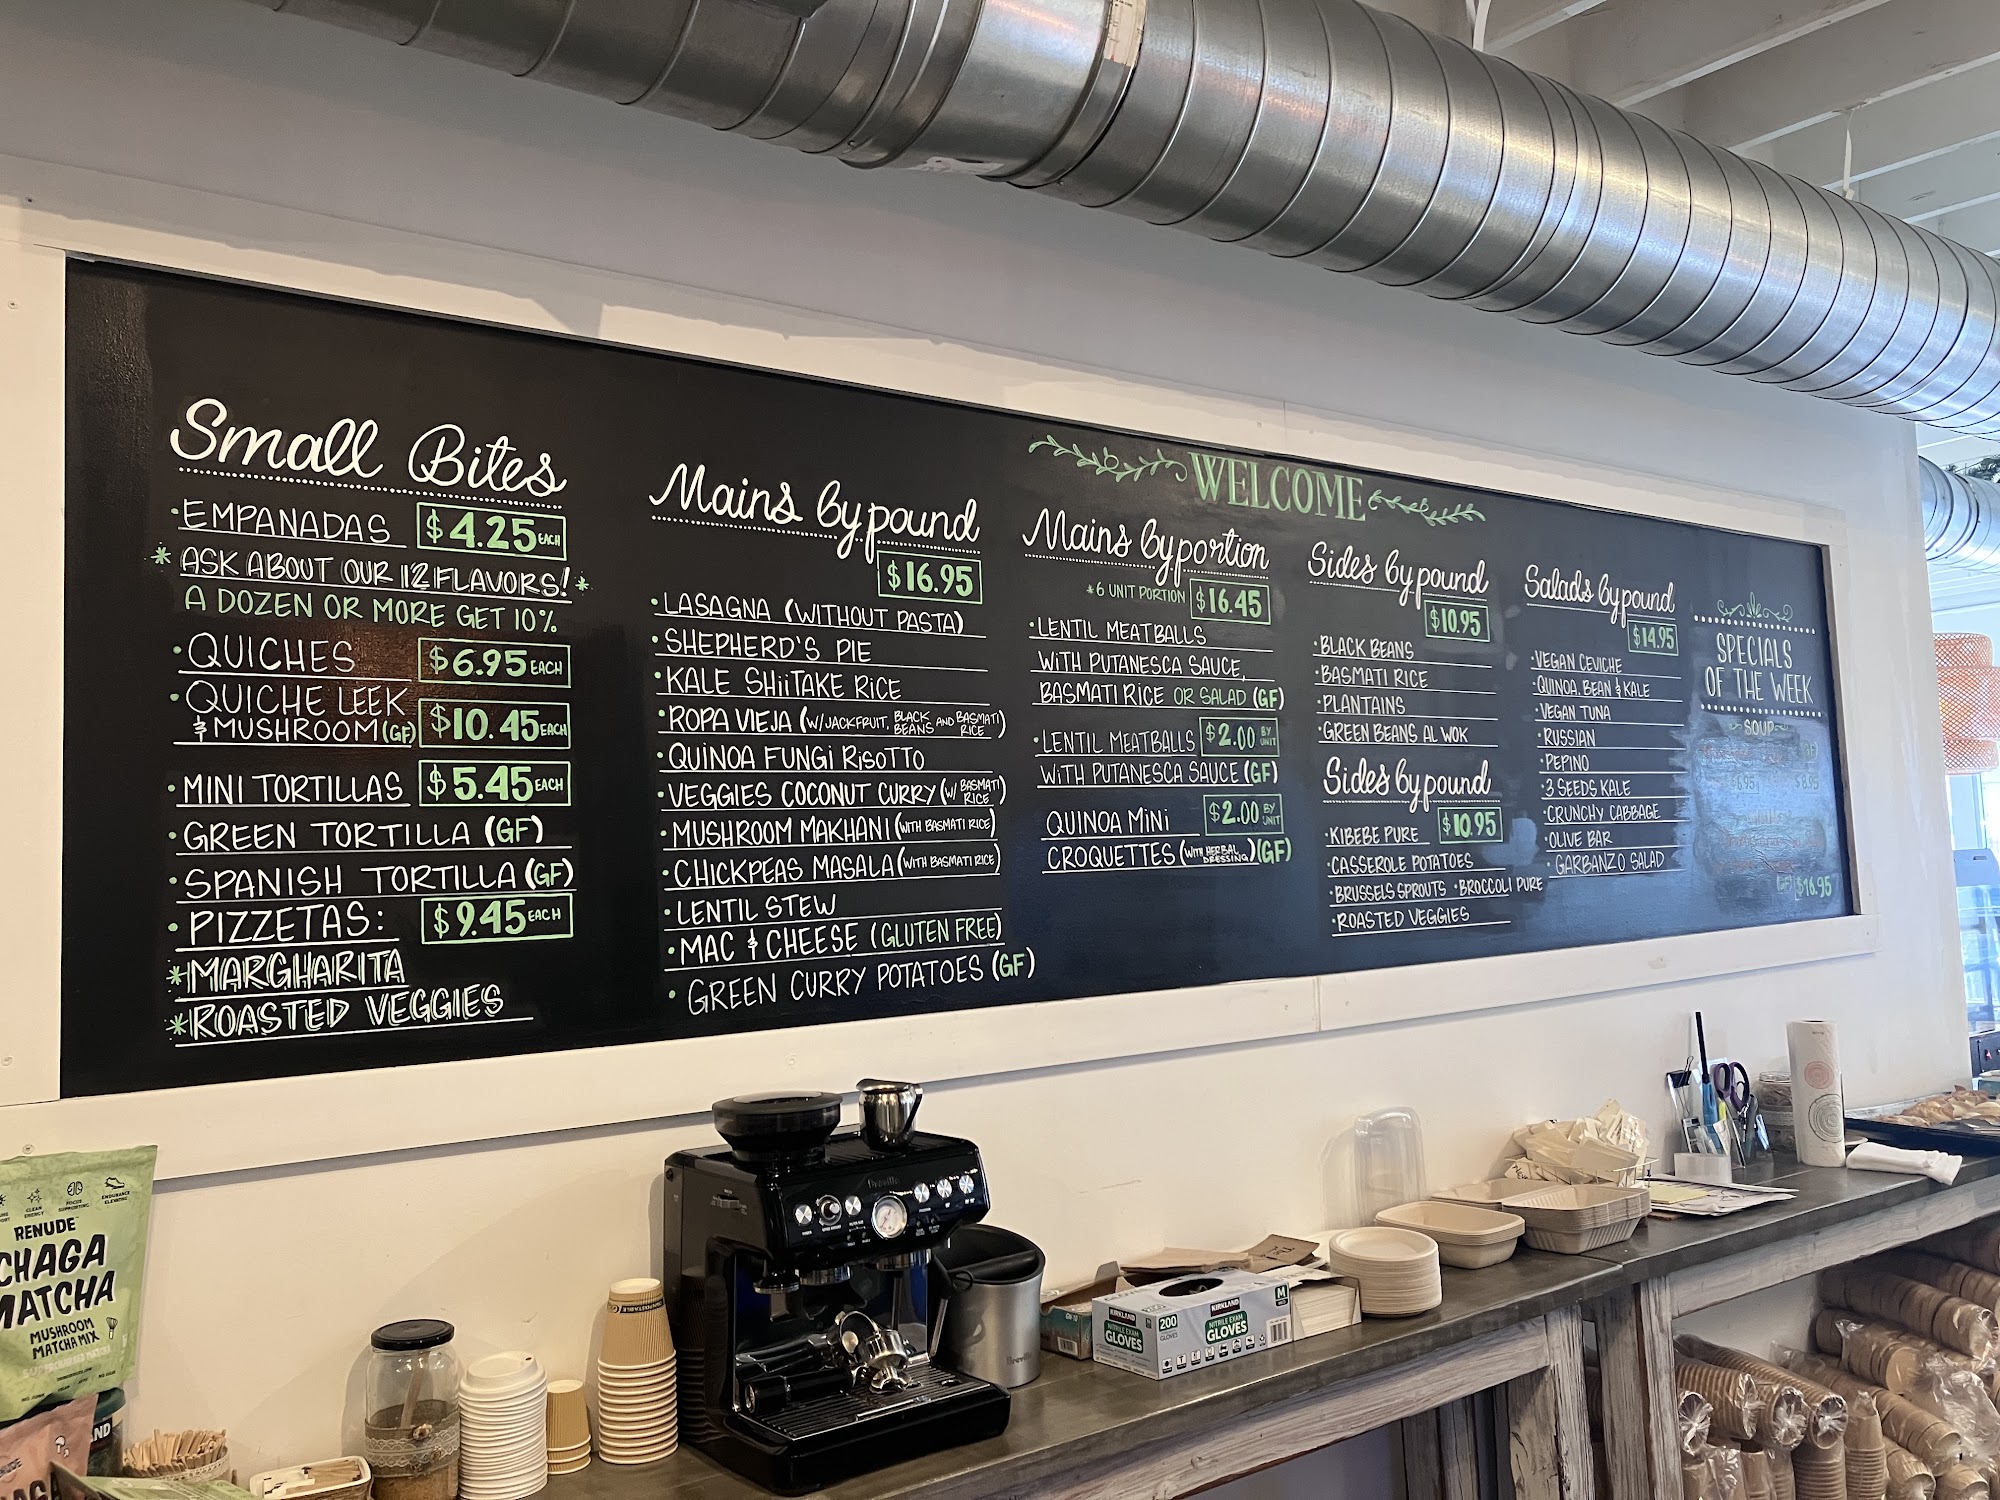 Small Bites
·EMPANADAS $4.25 EACH
*ASK ABOUT OUR 12 FLAVORS!*
A DOZEN OR MORE GET 10%
·QUICHES $6.95 EACH
·QUICHE LEEK
& MUSHROOM (GF) $10.45 EACH
·MINI TORTILLAS $5.45 EACH
·GREEN TORTILLA (GF)
·SPANISH TORTILLA (GF)
·PIZZETAS: $9.45 EACH
*MARGHARITA
*ROASTED VEGGIES
Mains by pound
$16.95
·LASAGNA (WITHOUT PASTA)
·SHEPHERD'S PIE
·KALE SHiiTAKE RiCE
·ROPA VIEJA (W/JACKFRUIT, BLACK BEANS AND BASMATI RICE)
·QUINOA FUNGi RiSOTTO
·VEGGIES COCONUT CURRY (W/ BASMATI RICE)
·MUSHROOM MAKHANI (WITH BASMATI RICE)
·CHICKPEAS MASALA (WITH BASMATI RICE)
·LENTIL STEW
·MAC & CHEESE (GLUTEN FREE)
·GREEN CURRY POTATOES (GF)
WELCOME
Mains by portion
*6 UNIT PORTION $16.45
·LENTIL MEATBALLS
WiTH PUTANESCA SAUCE,
BASMATI RICE OR SALAD (GF)
·LENTIL MEATBALLS $2.00 BY UNIT
WiTH PUTANESCA SAUCE (GF)
QUINOA MiNi $2.00 BY UNIT
CROQUETTES (WITH HERBAL DRESSING) (GF)
Sides by pound
$10.95
·BLACK BEANS
·BASMATI RICE
·PLANTAINS
·GREEN BEANS AL WOK
Sides by pound
·KIBEBE PURE $10.95
·CASSEROLE POTATOES
·BRUSSELS SPROUTS ·BROCCOLI PURE
·ROASTED VEGGIES
Salads by pound
$14.95
·VEGAN CEVICHE
·QUINOA, BEAN & KALE
·VEGAN TUNA
·RUSSIAN
·PEPINO
·3 SEEDS KALE
·CRUNCHY CABBAGE
·OLIVE BAR
·GARBANZO SALAD
SPECIALS
OF THE WEEK
SOUP
$6.95 $8.95
(GF) $16.95
CLEAN ENERGY
FOCUS SUPPORTING
ENDURANCE ELEVATING
RENUDE
CHAGA
MATCHA
MUSHROOM
MATCHA MIX
Breville
Breville
KIRKLAND
NITRILE EXAM
GLOVES
200
GLOVES
KIRKLAND
NITRILE EXAM
GLOVES
M